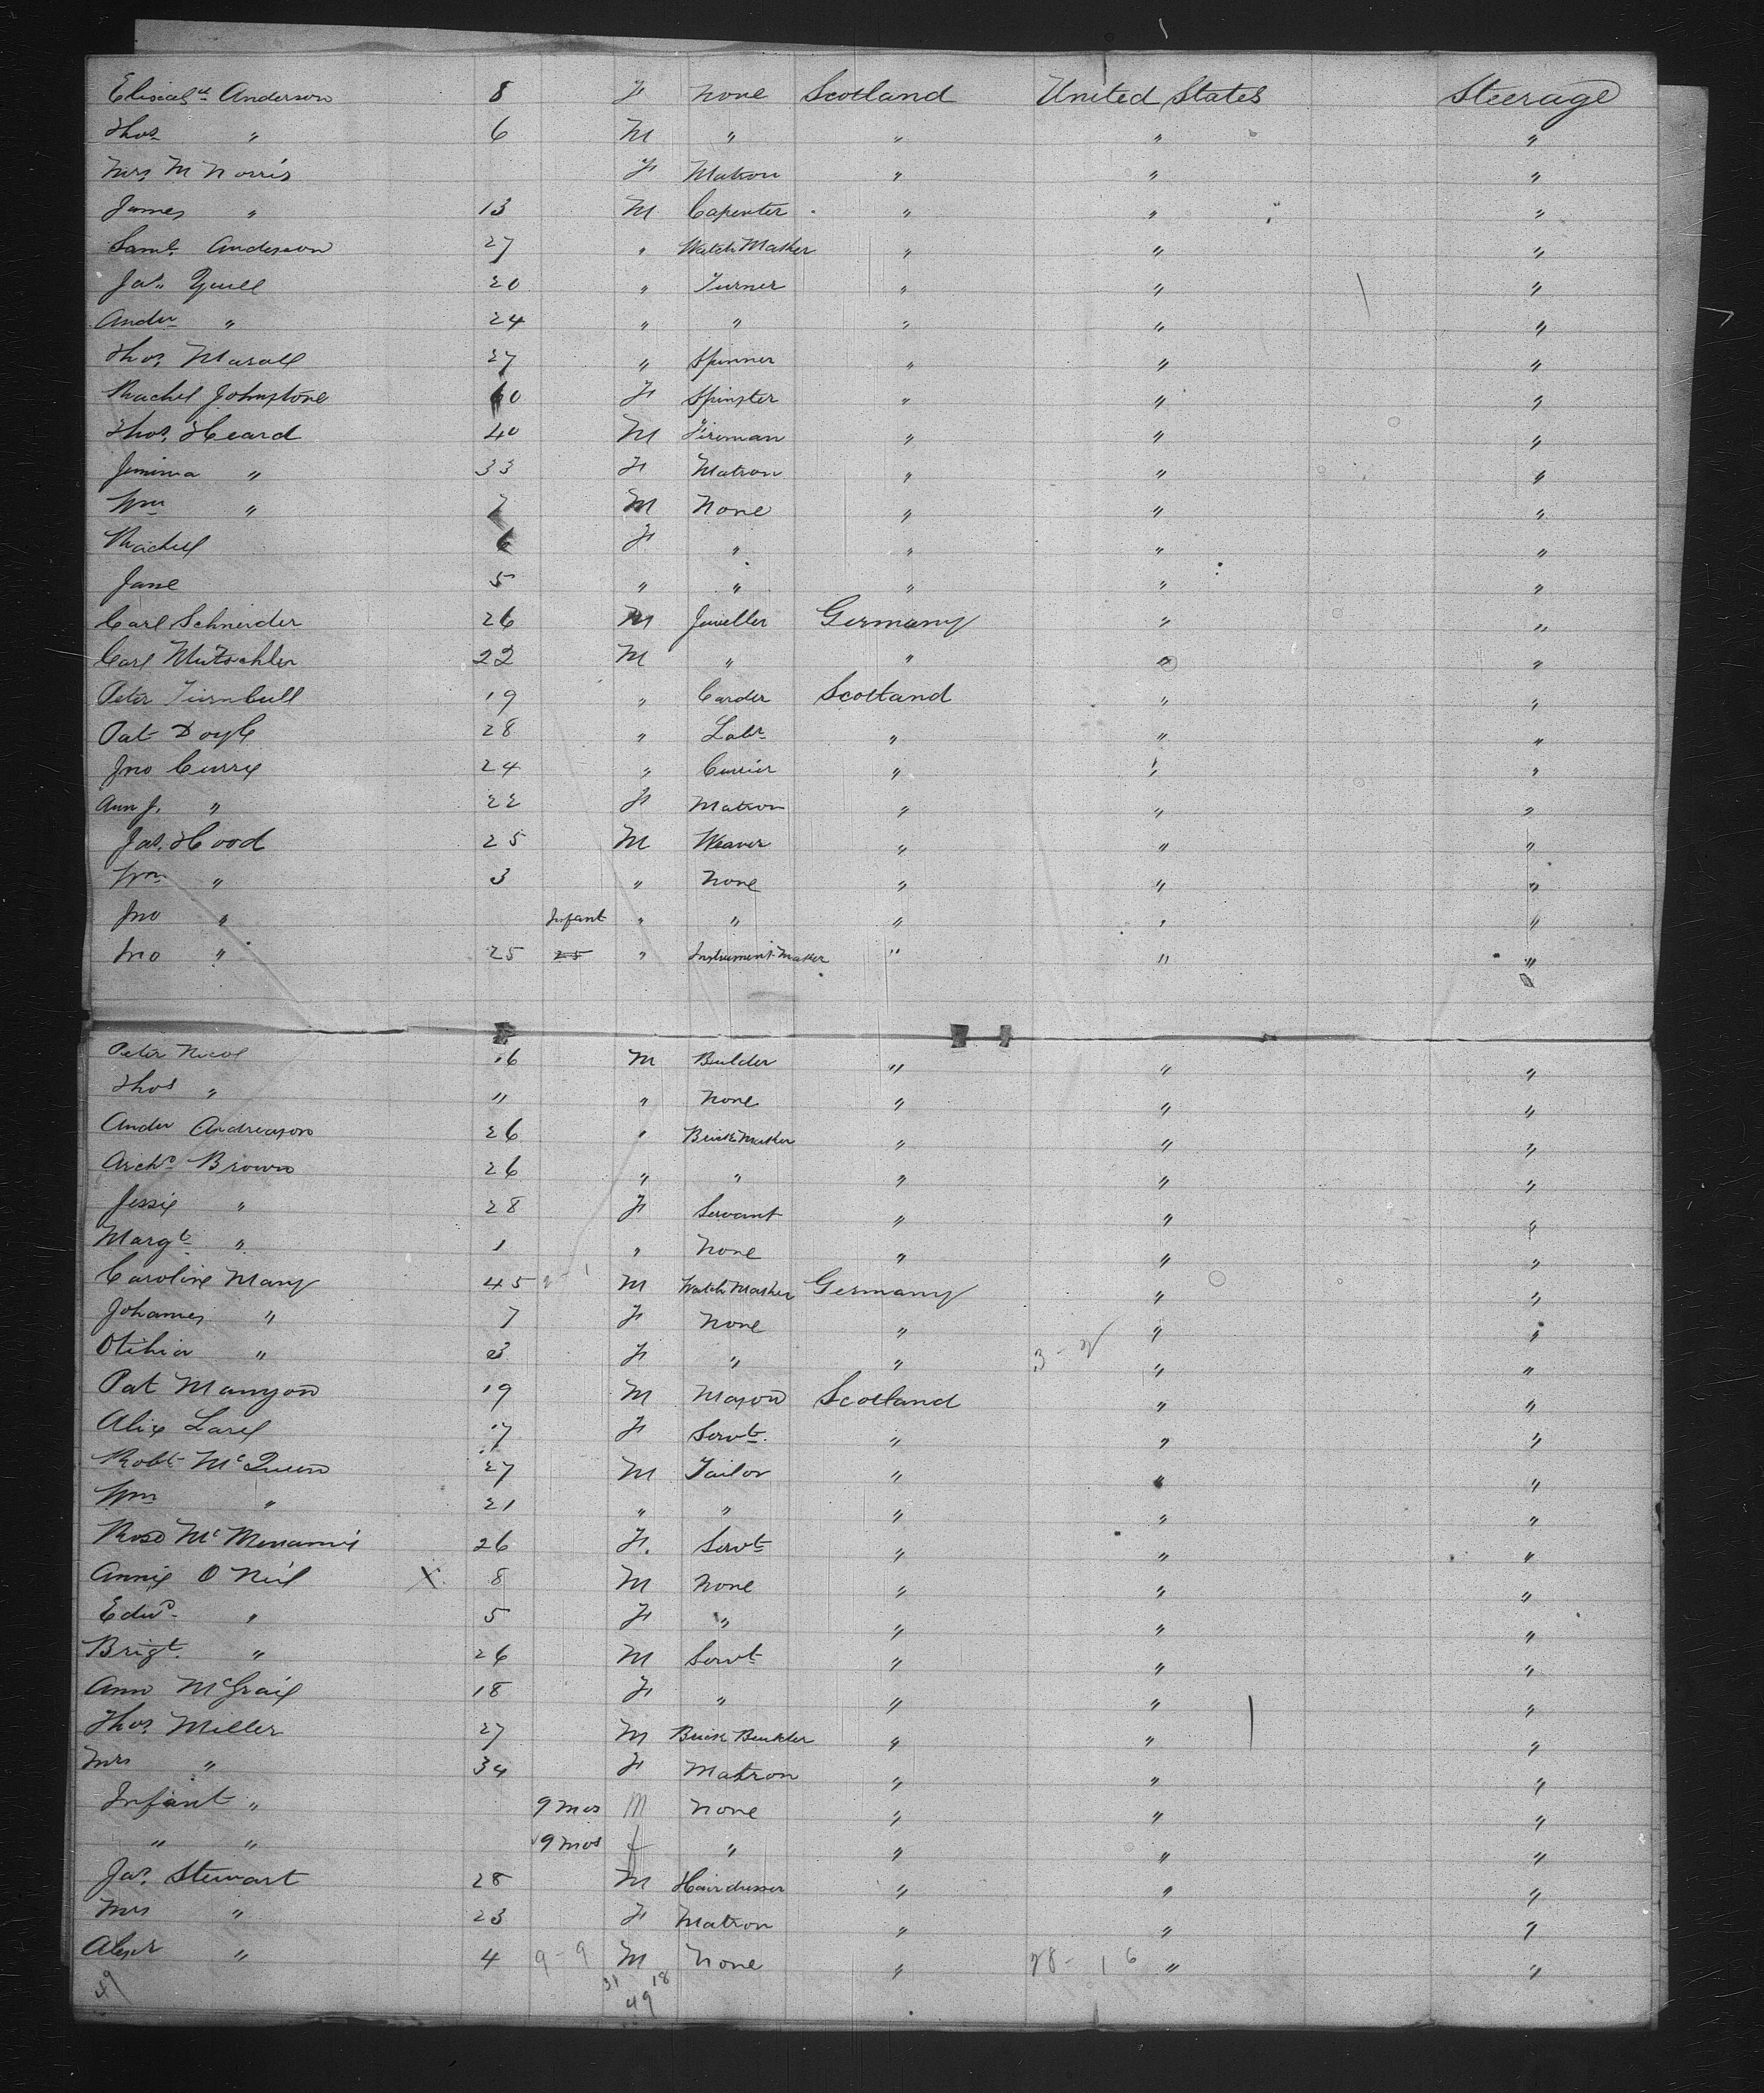 Elizabth Anderson 8 F None Scotland United States Steerage
Thos " 6 M " " " "
Mrs M Norris F Matron " " "
James " 13 M Capenter " " "
Saml Anderson 27 " Watch Maker " " "
Jas Yuell 20 " Turner " " "
Andw " 24 " " " " "
Thos 27 " Spinner " " "
Rachel Johnstone 60 F Spinster " " "
Thos Heard 40 M Fireman " " "
Jemima " 33 F Matron " " "
Wm " 7 M None " " "
Rachel 6 F " " " "
Jane 5 " " " " "
Carl Schneider 26 M Jeweller Germany " "
Carl Mutzschler 22 M " " " "
Peter Turnbull 19 " Carder Scotland " "
Pat Doyle 28 " Labr " " "
Jno Curry 24 " Currier " " "
Ann J. " 22 F Matron " " "
Jas. Hood 25 M Weaver " " "
Wm " 3 " None " " "
Jno " Infant " " " " "
Jno " 25 25 " Instrument Maker " " "
Peter Nicol 16 M Builder " " "
Thos " 11 " None " " "
Andw Andreason 26 " Brick Maker " " "
Archd Brown 26 " " " " "
Jessie " 28 F Servant " " "
Margt " 1 " None " " "
Caroline Many 45 2-1 M Watch Maker Germany " "
Johannes " 7 F None " " "
Otihia " 3 F " " 3-2 " "
Pat Mannyon 19 M Mason Scotland " "
Alix 17 F Servt. " " "
Robt McQueen 27 M Tailor " " "
Wm " 21 " " " " "
Rose McMenamie 26 F. Servt " " "
Annie O Neil X 8 M None " " "
Edwd " 5 F " " " "
Brigt. " 26 M Servt " " "
Ann McGrail 18 F " " " "
Thos Miller 27 M Brick Builder " " "
Mrs " 34 F Matron " " "
Infant " 9 mos M None " " "
" " 9 mos f " " " "
Jas. Stewart 28 M Hairdresser " " "
Mrs " 23 F Matron " " "
Alexr " 4 9-9 M None " 28-16 " "
49 31 18
49